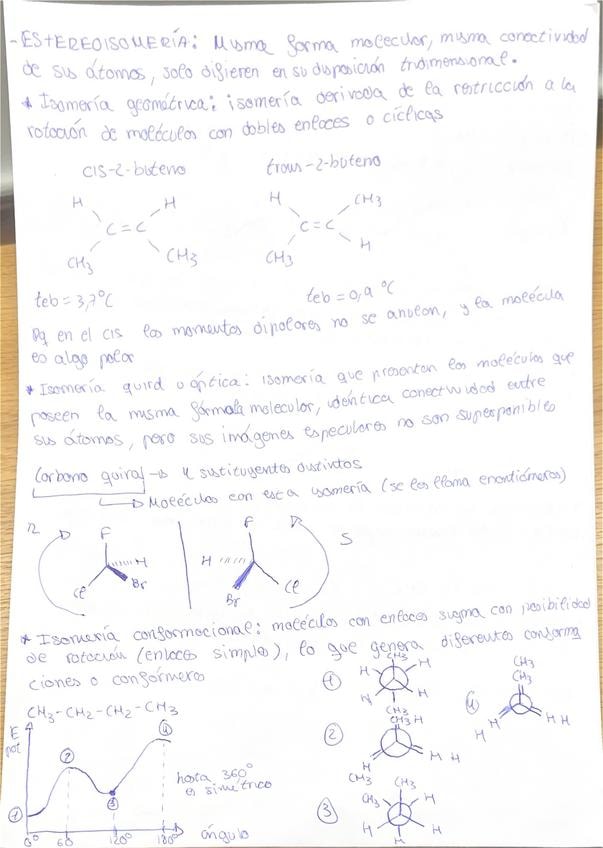 - ESTEREOISOMERÍA: Misma forma molecular, misma conectividad
de sus átomos, solo difieren en su disposición tridimensional.
* Isomería geométrica: isomería derivada de la restricción a la
rotación de moléculas con dobles enlaces o cíclicas
cis-2-buteno trans-2-buteno
H H H CH3
C=C C=C
CH3 CH3 CH3 H
teb = 3,7ºC teb = 0,9 ºC
Pq en el cis los momentos dipolares no se anulan, y la molécula
es algo polar
* Isomería quiral u óptica: isomería que presentan las moléculas que
poseen la misma fórmula molecular, idéntica conectividad entre
sus átomos, pero sus imágenes especulares no son superponibles
Carbono quiral → 4 sustituyentes distintos
→ Moléculas con esta isomería (se les llama enantiómeros)
R F F S
H H
Cl Br Br Cl
* Isomería conformacional: moléculas con enlaces sigma con posibilidad
de rotación (enlaces simples), lo que genera diferentes conforma
ciones o confórmeros
CH3-CH2-CH2-CH3
E
pot
1 2 3 4
hasta 360º
es simétrico
0º 60 120º 180º ángulo
1 CH3 H H H H CH3
2 CH3 H H H H CH3
3 CH3 CH3 H H H H
4 CH3 CH3 H H H H